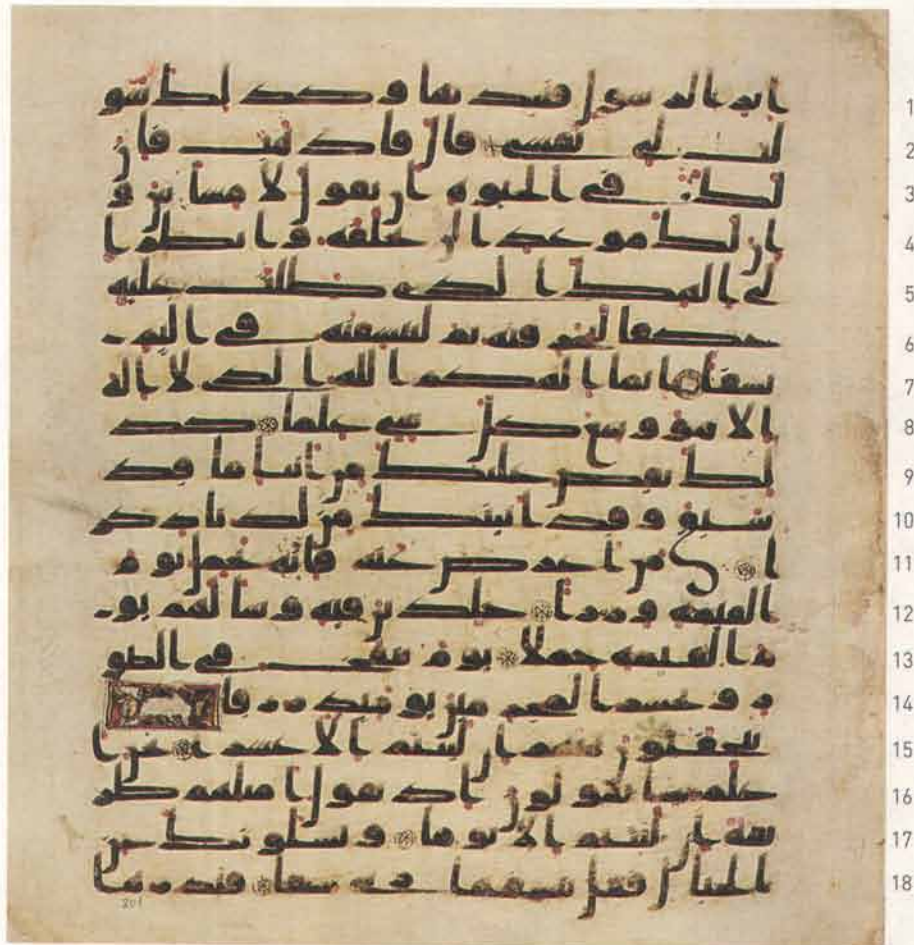 اثر الرسول فنبذتها وكذلك سو 1
لت لي نفسي قال فاذهب فان 2
لك في الحيوة ان تقول لا مساس و 3
ان لك موعدا لن تخلفه وانظر ا 4
لى الهك الذي ظلت عليه 5
عكفا لنحرقنه ثم لننسفنه في اليم 6
نسفا انما الهكم الله الذي لا اله 7
الا هو وسع كل شيء علما كذ 8
لك نقص عليك من انبا ما قد 9
سبق وقد اتينك من لدنا ذكر 10
ا من اعرض عنه فانه يحمل يوم 11
القيمة وزرا خلدين فيه وسا لهم يو 12
م القيمة حملا يوم ينفخ في الصو 13
ر ونحشر المجرمين يومئذ زرقا 14
يتخفتون بينهم ان لبثتم الا عشرا نحن ا 15
علم بما يقولون اذ يقول امثلهم طر 16
يقة ان لبثتم الا يوما ويسلونك عن 17
الجبال فقل ينسفها ربي نسفا فيذرها 18